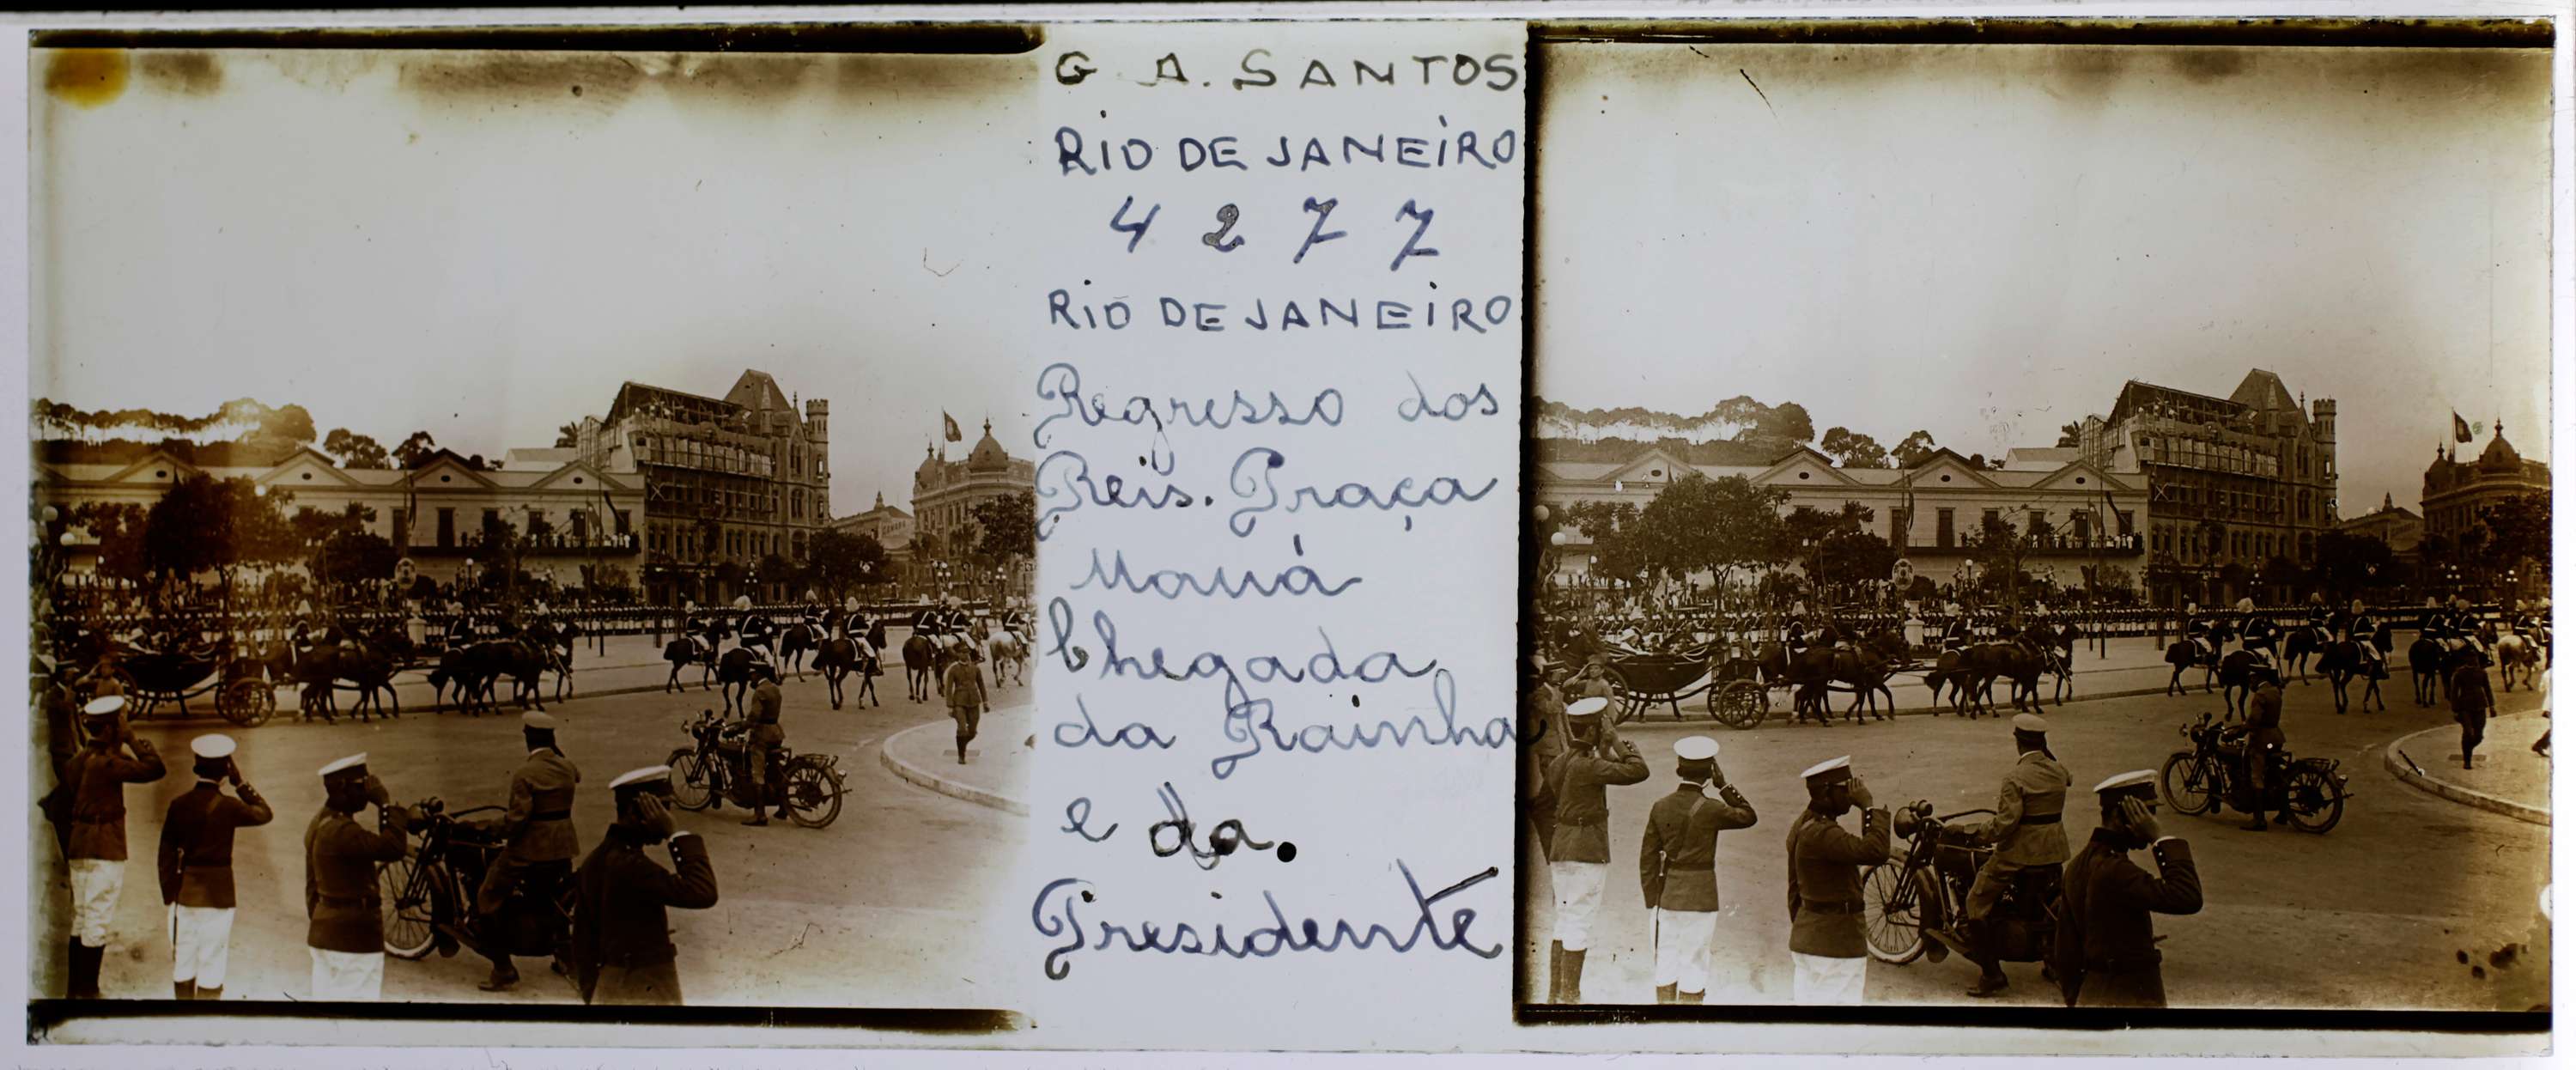 G A. SANTOS
RIO DE JANEIRO
4277
RIO DE JANEIRO
Regresso dos
Reis. Praça
Mauá
Chegada
da Rainha
e da.
Presidente